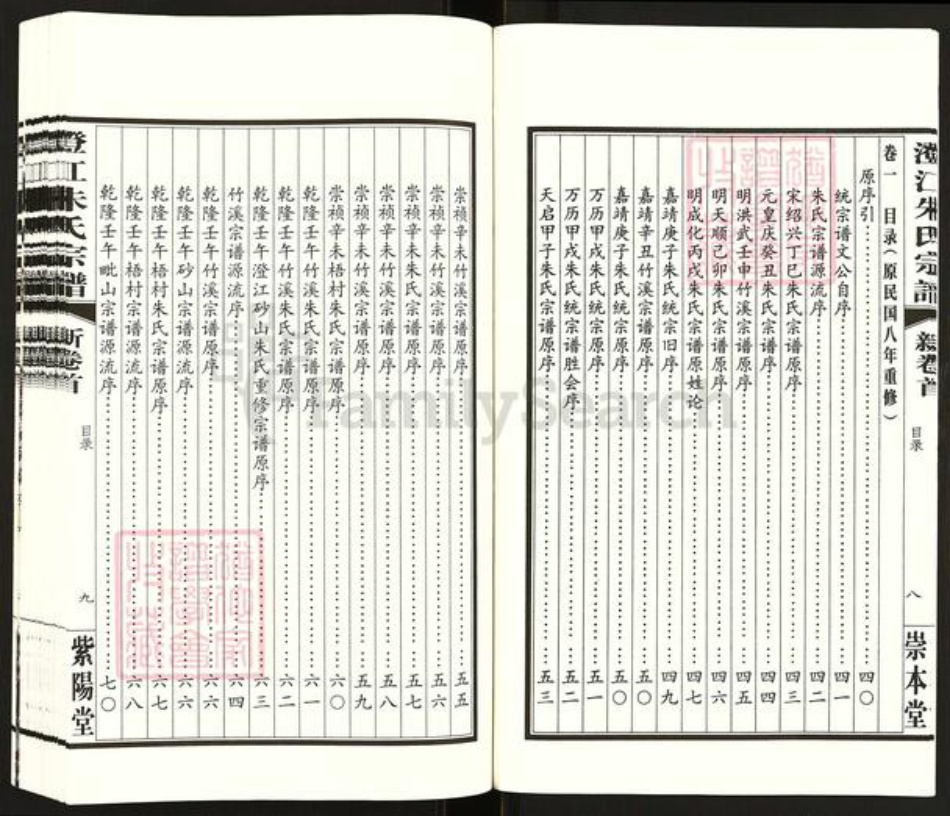 澄江朱氏宗譜
新卷首
目录
八
崇本堂
卷一 目录(原民国八年重修)
原序引 四〇
统宗谱文公自序 四一
朱氏宗谱源流序 四二
宋绍兴丁巳朱氏宗谱原序 四三
元皇庆癸丑朱氏宗谱序 四四
明洪武壬申竹溪宗谱序 四五
明天顺己卯朱氏宗谱序 四六
明成化丙戌朱氏宗谱原姓论 四七
嘉靖庚子朱氏统宗旧序 四九
嘉靖辛丑竹溪宗谱序 五〇
嘉靖庚子朱氏宗谱原序 五〇
万历甲戌朱氏统宗谱原序 五一
万历甲戌朱氏统宗谱胜会序 五二
天启甲子朱氏宗谱原序 五三
崇祯辛未竹溪宗谱原序 五五
崇祯辛未竹溪宗谱原序 五六
崇祯辛未朱氏宗谱原序 五七
崇祯辛未竹溪宗谱原序 五八
崇祯辛未竹溪宗谱原序 五九
崇祯辛未梧村朱氏宗谱原序 六〇
乾隆壬午竹溪朱氏宗谱原序 六一
乾隆壬午竹溪朱氏宗谱原序 六二
乾隆壬午澄江砂山朱氏重修宗谱原序 六三
竹溪宗谱源流序 六四
乾隆壬午竹溪宗谱原序 六六
乾隆壬午砂山宗谱源流序 六六
乾隆壬午梧村朱氏宗谱原序 六七
乾隆壬午梧村宗谱源流序 六八
乾隆壬午毗山宗谱源流序 七〇
澄江朱氏宗譜
新卷首
目录
九
紫陽堂
FamilySearch